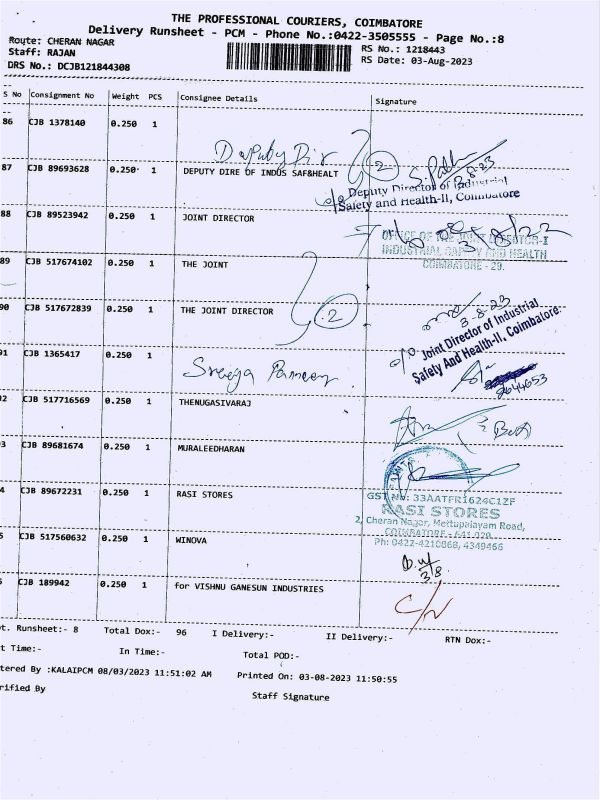 THE PROFESSIONAL COURIERS, COIMBATORE
Delivery Runsheet - PCM - Phone No.:0422-3505555 - Page No.:8
Route: CHERAN NAGAR
RS No.: 1218443
Staff: RAJAN
RS Date: 03-Aug-2023
DRS No.: DCJB121844308
S No Consignment No Weight PCS Consignee Details Signature
86 CJB 1378140 0.250 1
Deputy Dir 2
87 CJB 89693628 0.250 1 DEPUTY DIRE OF INDUS SAF&HEALT
3-8-23
Deputy Director of Industrial
Safety and Health-II, Coimbatore
88 CJB 89523942 0.250 1 JOINT DIRECTOR
OFFICE OF THE JOINT DIRECTOR-I
INDUSTRIAL SAFETY AND HEALTH
COIMBATORE - 29.
89 CJB 517674102 0.250 1 THE JOINT
90 CJB 517672839 0.250 1 THE JOINT DIRECTOR
2
3-8-23
Joint Director of Industrial
Safety And Health-II, Coimbatore.
91 CJB 1365417 0.250 1
2 CJB 517716569 0.250 1 THENUGASIVARAJ
3 CJB 89681674 0.250 1 MURALEEDHARAN
4 CJB 89672231 0.250 1 RASI STORES
GST No: 33AATFR1624C1ZF
RASI STORES
2, Cheran Nagar, Mettupalayam Road,
COIMBATORE - 641 029
Ph: 0422-4210868, 4349466
5 CJB 517560632 0.250 1 WINOVA
3/8
CJB 189942 0.250 1 for VISHNU GANESUN INDUSTRIES
C/N
t. Runsheet:- 8 Total Dox:- 96 I Delivery:- II Delivery:- RTN Dox:-
t Time:- In Time:- Total POD:-
tered By :KALAIPCM 08/03/2023 11:51:02 AM Printed On: 03-08-2023 11:50:55
rified By Staff Signature